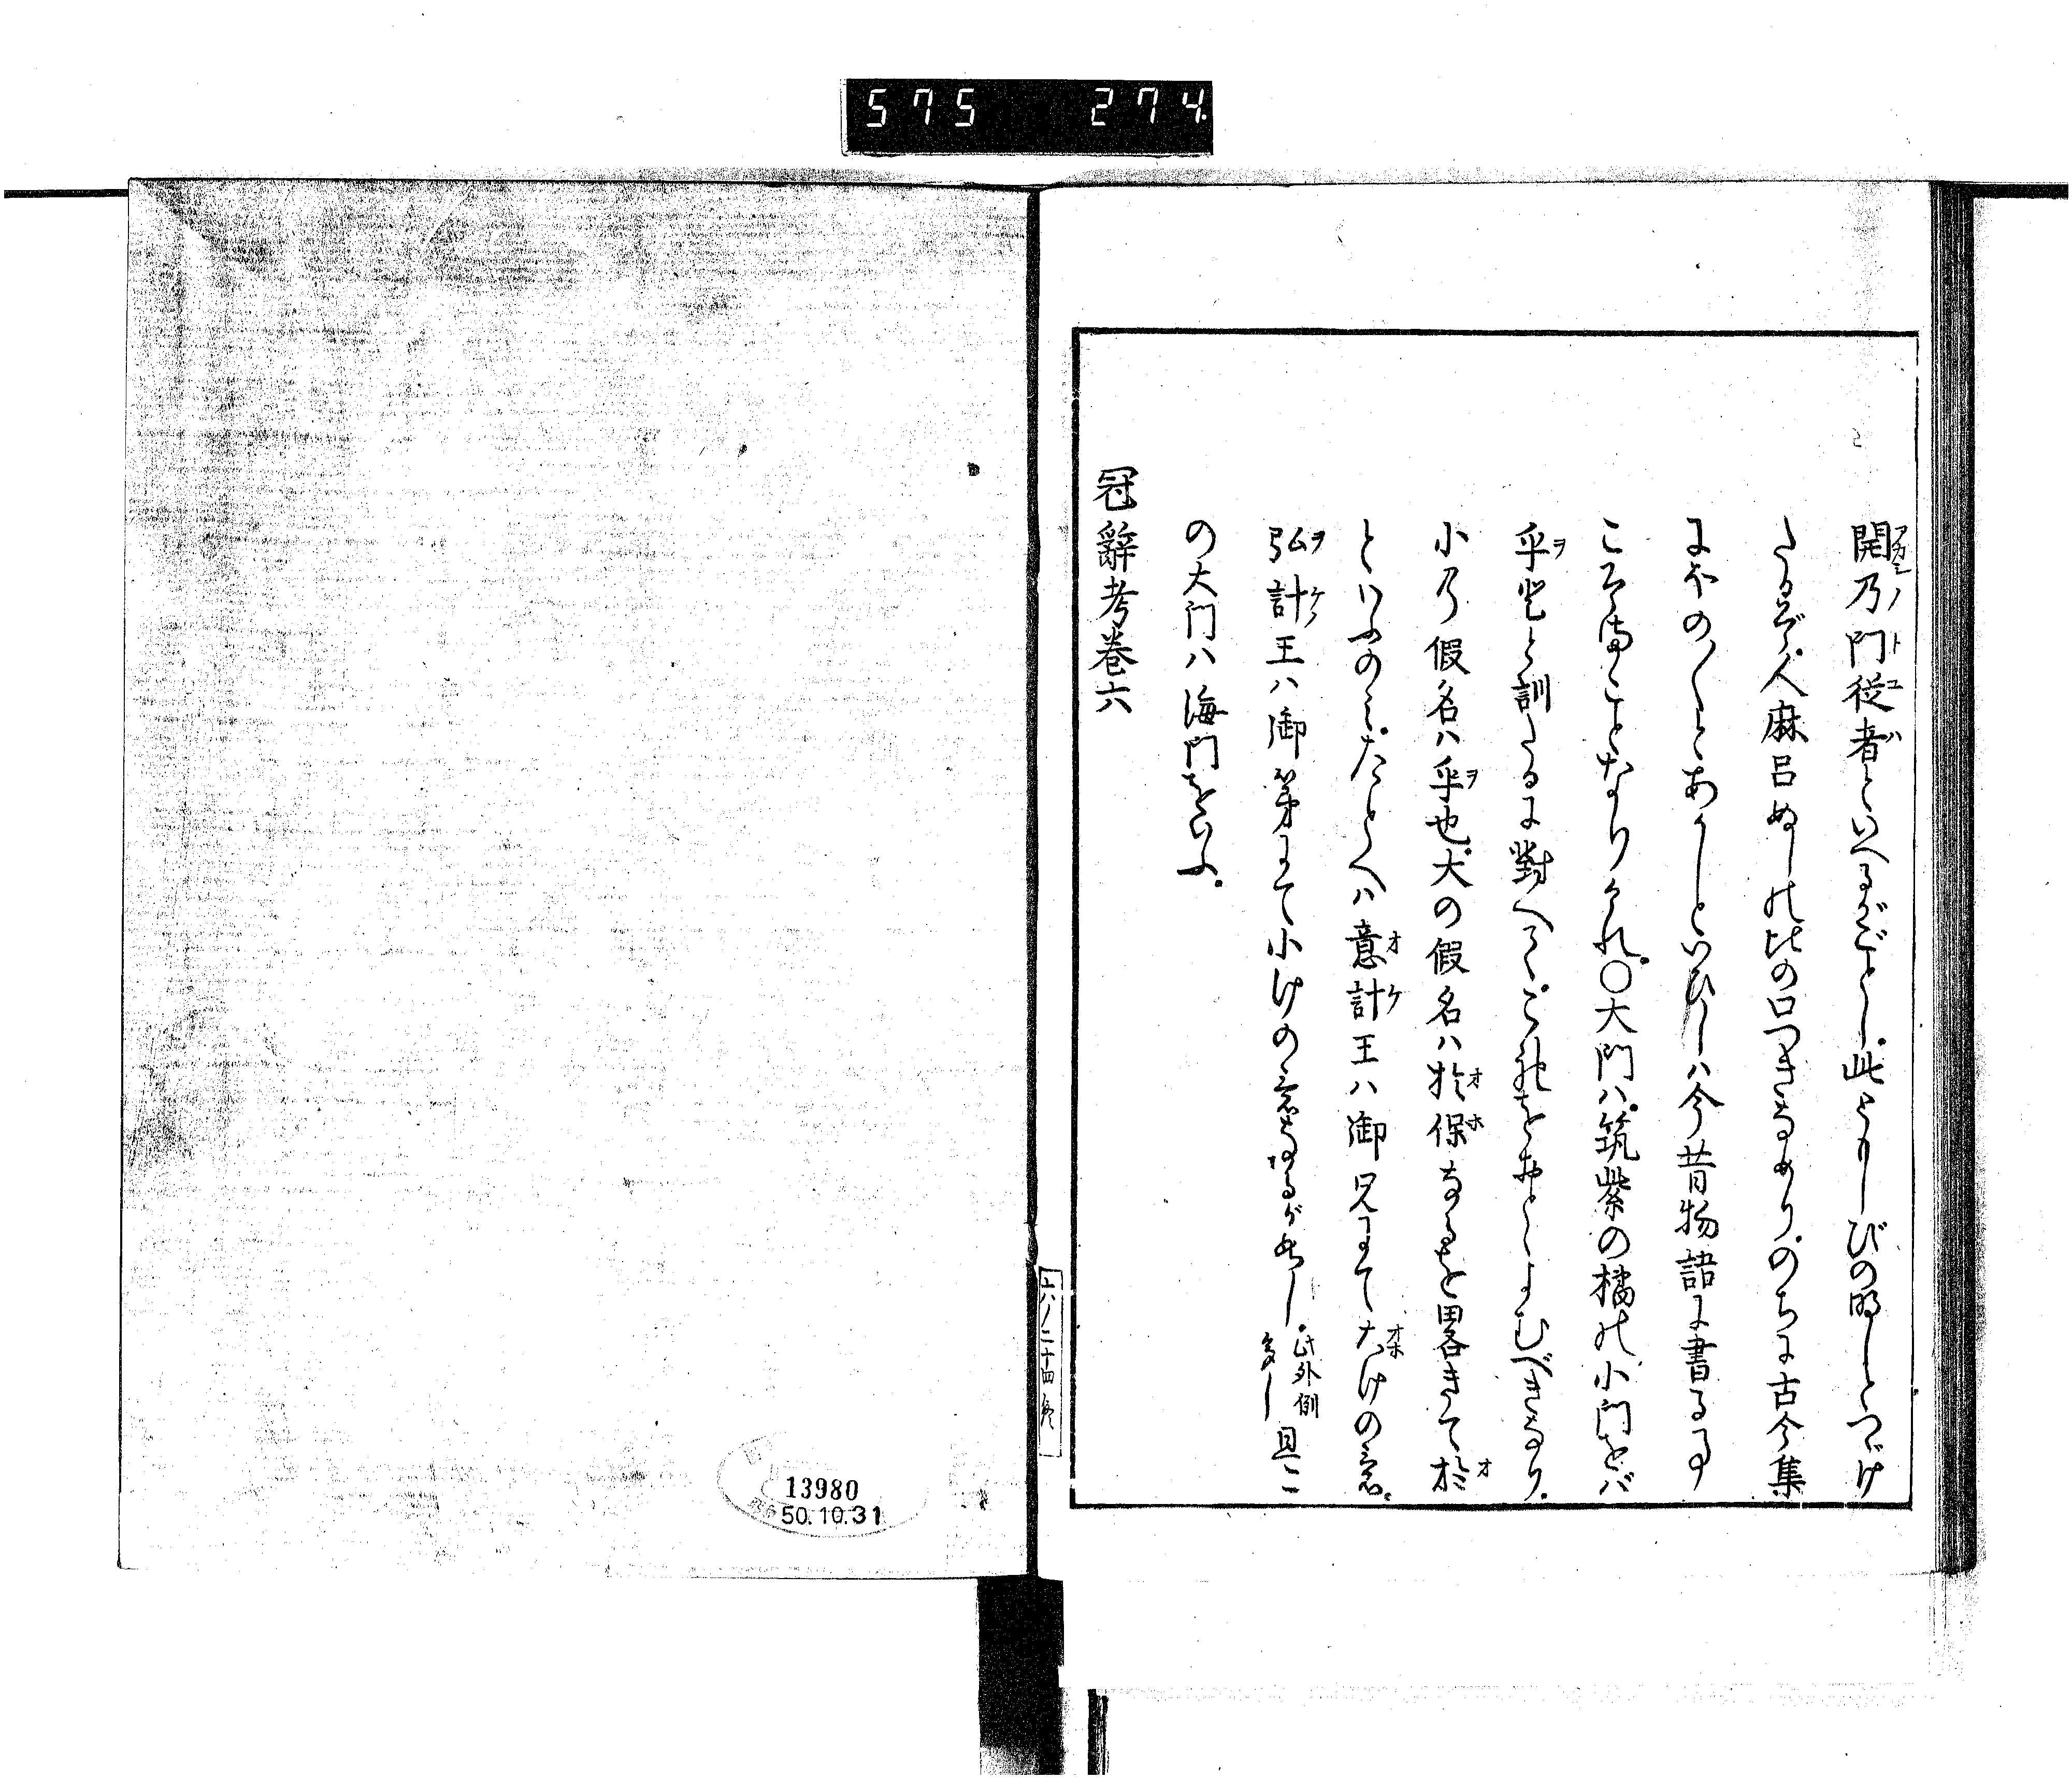 575 274
開乃門従者といへるがごとし。此ともしびの明しとつゞけ
たるぞ、人麻呂ぬしの比の口つきなめり。のちに古今集
にほの〳〵とあかしといひしハ今昔物語に書るる
こそなりけれ。〇大門ハ筑紫の橘の小門をバ
乎登と訓たるに對へて、これをおとよむべきなり。
小乃假名ハ乎也。大の假名ハ於保なるを畧きて於
といふのみ。たとへハ意計王ハ御兄にて大けの意。
弘計王ハ御弟にて小けの意なるが如し。此外例多し 且こ
の大門ハ海門をいふ。
冠辭考巻六
六ノ二十四終
13980
50.10.31